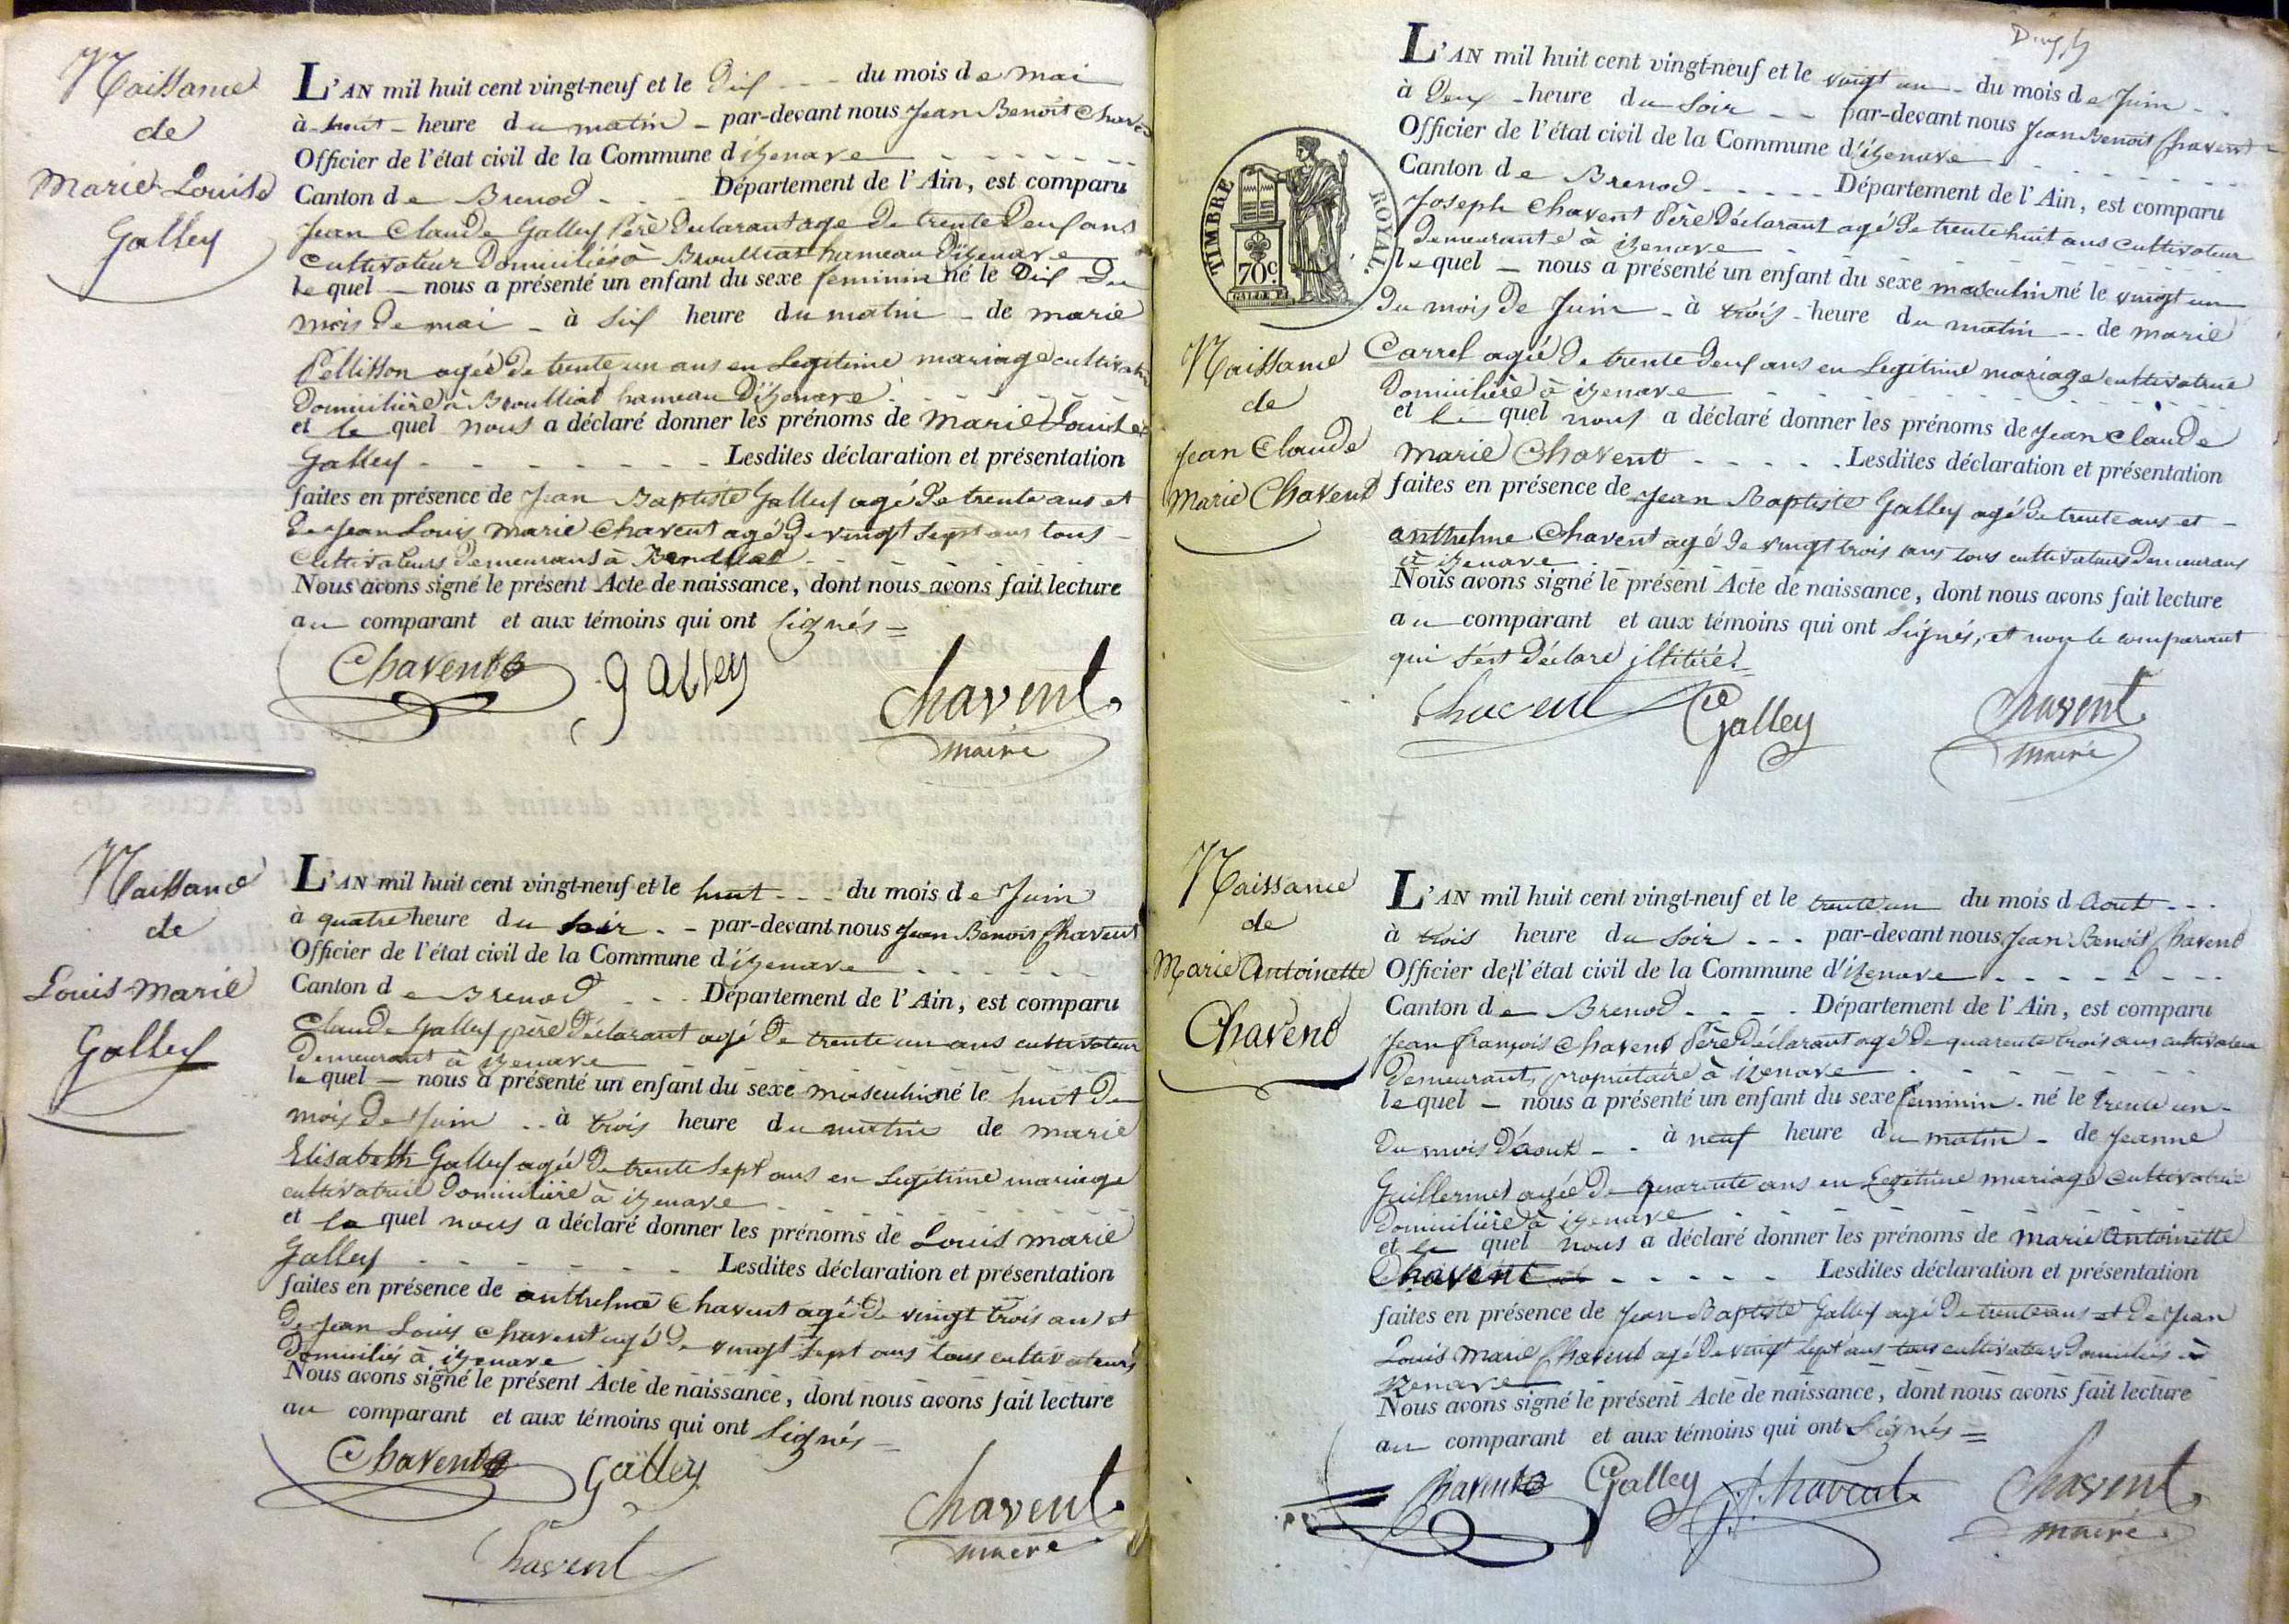 Naissance
de
Marie Louise
Galley
L'AN mil huit cent vingt-neuf et le Dix - - - du mois de mai
à huit - heure du matin - par-devant nous Jean Benoît Chavent
Officier de l'état civil de la Commune d'izenave - - - - - - -
Canton de Brenod - - - Département de l'Ain, est comparu
Jean Claude Galley Père Declarant age De trente Deux ans
cultivateur Domiciliés à Broulliat hameau D'izenave
lequel - nous a présenté un enfant du sexe feminin né le Dix Du
mois De mai - à six heure du matin - de marie
Pellisson agée De trente un ans en Legitime mariage cultivatrice
Domicilière à Broulliat hameau D'izenave - - -
et le quel nous a déclaré donner les prénoms de Marie Louise
Galley - - - - - - - - Lesdites déclaration et présentation
faites en présence de Jean Baptiste Galley agé De trente ans et
De Jean Louis Marie Chavent agé De vingt sept ans tous -
cultivateurs Demeurans à
Nous avons signé le présent Acte de naissance, dont nous avons fait lecture
au comparant et aux témoins qui ont signés =
Chavent Galley Chavent
maire
Naissance
de
Louis Marie
Galley
L'AN mil huit cent vingt-neuf et le huit - - - du mois de Juin
à quatre heure du soir - - par-devant nous Jean Benoit Chavent
Officier de l'état civil de la Commune d'izenave - - - - - -
Canton de Brenod - - - Département de l'Ain, est comparu
Claude Galley père Déclarant agé De trente un ans cultivateur
Demeurant à izenave
lequel - nous a présenté un enfant du sexe masculin né le huit Du
mois De Juin - - à trois heure du matin de marie
Elisabeth Galley agée De trente sept ans en Legitime mariage
cultivatrice Domicilière à izenave - - - - - -
et le quel nous a déclaré donner les prénoms de Louis Marie
Galley - - - - - - - Lesdites déclaration et présentation
faites en présence de anthelme Chavent agé De vingt trois ans et
De Jean Louis Chavent agé De vingt sept ans tous cultivateurs
Domiciliés à izenave
Nous avons signé le présent Acte de naissance, dont nous avons fait lecture
au comparant et aux témoins qui ont signés -
Chavent Galley Chavent
maire
Chavent
L'AN mil huit cent vingt-neuf et le vingt un - du mois de Juin - -
à Deux - heure du soir - - par-devant nous Jean Benoit Chavent
Officier de l'état civil de la Commune d'izenave - - - - - -
Canton de Brenod - - - - - Département de l'Ain, est comparu
Joseph Chavent Père Déclarant agé De trente huit ans cultivateur
demeurante à izenave - - - - - -
lequel - nous a présenté un enfant du sexe masculin né le vingt un
Du mois De Juin - à trois - heure du matin - - de marie
TIMBRE ROYAL.
70c.
Naissance
de
Jean Claude
Marie Chavent
Carrel agée De trente Deux ans en Legitime mariage cultivatrice
Domicilière à izenave - - - - - -
et le quel nous a déclaré donner les prénoms de Jean Claude
Marie Chavent - - - - - Lesdites déclaration et présentation
faites en présence de Jean Baptiste Galley agé De trente ans et -
anthelme Chavent agé De vingt trois ans tous cultivateurs Demeurans
à izenave
Nous avons signé le présent Acte de naissance, dont nous avons fait lecture
au comparant et aux témoins qui ont signés, et non le comparant
qui s'est Déclaré illitéré.
Chavent Galley Chavent
maire
Naissance
de
Marie Antoinette
Chavent
L'AN mil huit cent vingt-neuf et le trente un du mois d Aout - - -
à trois heure du soir - - - par-devant nous Jean Benoit Chavent
Officier de l'état civil de la Commune d'izenave - - - - - - -
Canton de Brenod - - - - Département de l'Ain, est comparu
Jean françois Chavent Père Déclarant agé De quarente trois ans cultivateur
Demeurant, propriétaire à izenave - - - - - -
lequel - nous a présenté un enfant du sexe feminin - né le trente un -
Du mois D'aout - - à neuf heure du matin - de Jeanne
Guillermet agée De quarente ans en Legitime mariage cultivatrice
Domicilière à izenave - - - - - -
et le quel nous a déclaré donner les prénoms de Marie Antoinette
Chavent - - - - - - Lesdites déclaration et présentation
faites en présence de Jean Baptiste Galley agé De trente ans et De Jean
Louis Marie Chavent agé De vingt sept ans tous cultivateurs Domiciliés à
izenave
Nous avons signé le présent Acte de naissance, dont nous avons fait lecture
au comparant et aux témoins qui ont signés =
Chavent Galley Chavent Chavent
maire